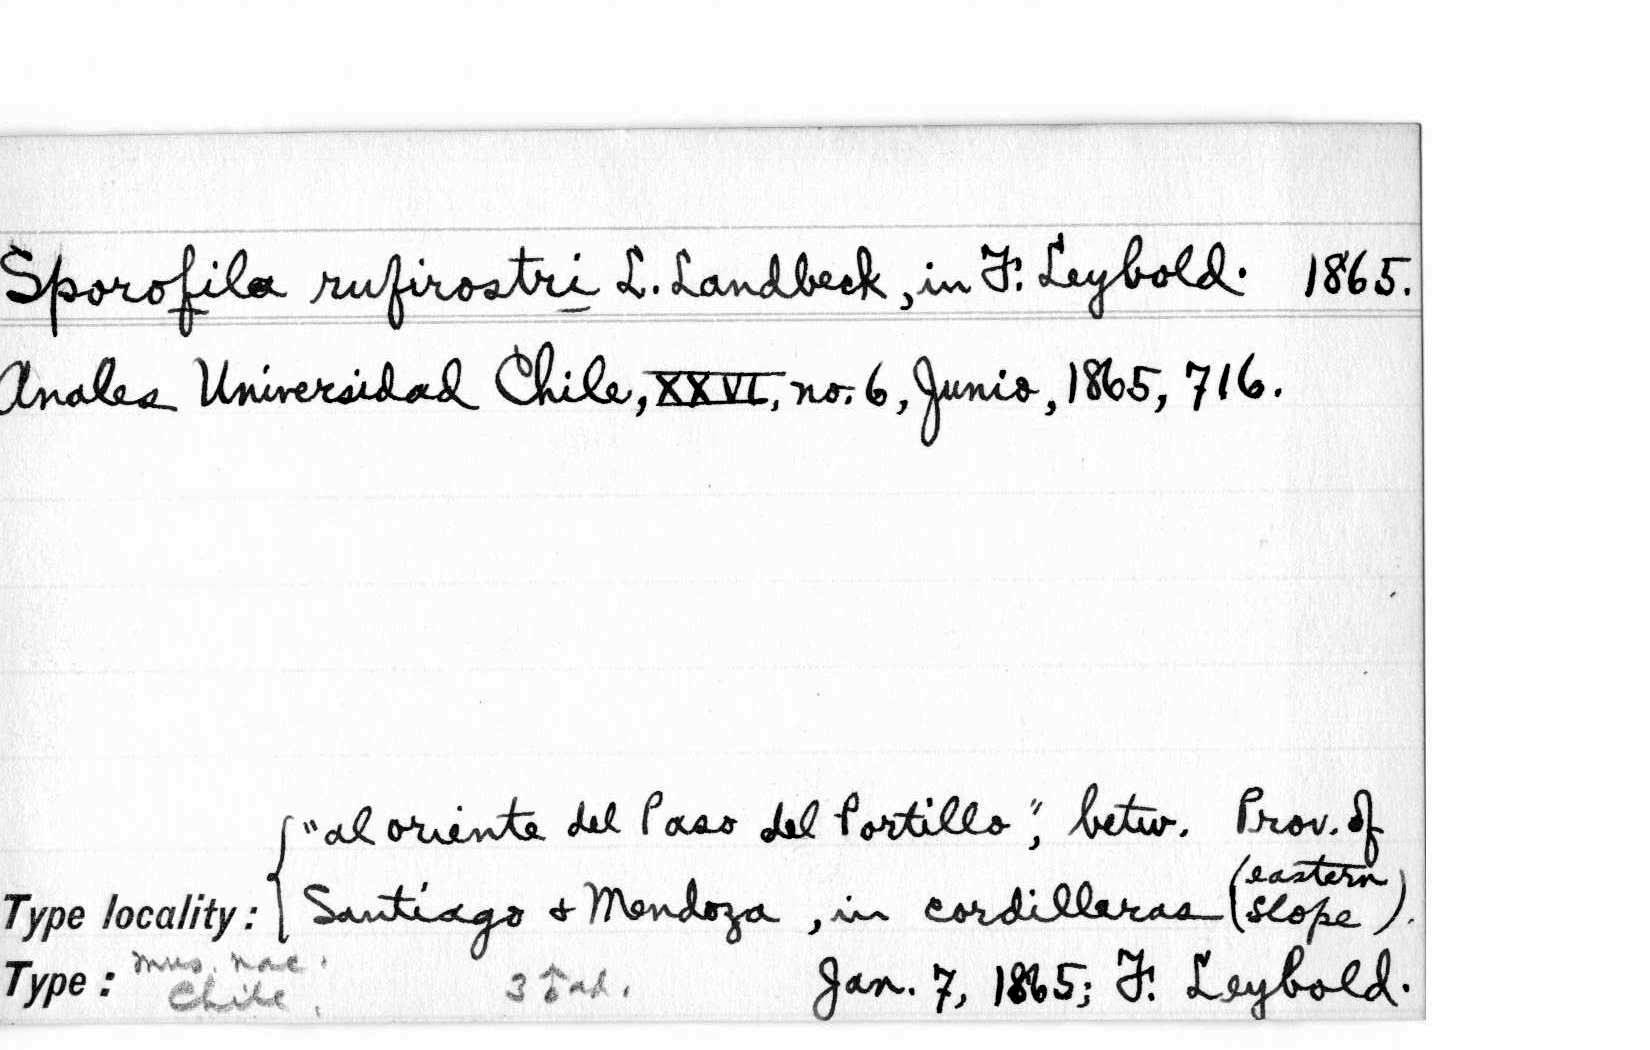 Sporofila rufirostri L. Landbeck, in F. Leybold. 1865.
Anales Universidad Chile, XXVI, no. 6, Junio, 1865, 716.
"al oriente del Paso del Portillo", betw. Prov. of
Type locality: Santiago & Mendoza, in cordilleras (eastern slope).
Type: mus. nac. Chile. 3 ♂ ad. Jan. 7, 1865; F. Leybold.